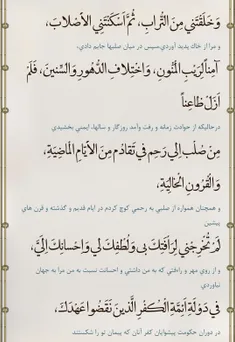 وَخَلَقْتَنِي مِنَ التُّرَابِ، ثُمَّ أَسْكَنْتَنِي الْأَصْلَابَ،
و مرا از خاک پدید آوردی،سپس در میان صلبها جایم دادی،
آمِناً لِرَيْبِ الْمَنُونِ، وَاخْتِلَافِ الدُّهُورِ وَالسِّنِينَ، فَلَمْ
أَزَلْ ظَاعِناً
درحالیکه از حوادث زمانه و رفت وآمد روزگار و سالها، ایمنی بخشیدی
مِنْ صُلْبٍ إِلَى رَحِمٍ فِي تَقَادُمٍ مِنَ الْأَيَّامِ الْمَاضِيَةِ،
وَالْقُرُونِ الْخَالِيَةِ،
و همچنان همواره از صلبی به رحمی کوچ کردم در ایام قدیم و گذشته و قرن های
پیشین
لَمْ تُخْرِجْنِي لِرَأْفَتِكَ بِي وَلُطْفِكَ لِي وَإِحْسَانِكَ إِلَيَّ،
و از روی مهر و رافتی که به من داشتی و احسانت نسبت به من مرا به جهان
نیاوردی
فِي دَوْلَةِ أَئِمَّةِ الْكُفْرِ الَّذِينَ نَقَضُوا عَهْدَكَ،
در دوران حکومت پیشوایان کفر آنان که پیمان تو را شکستند